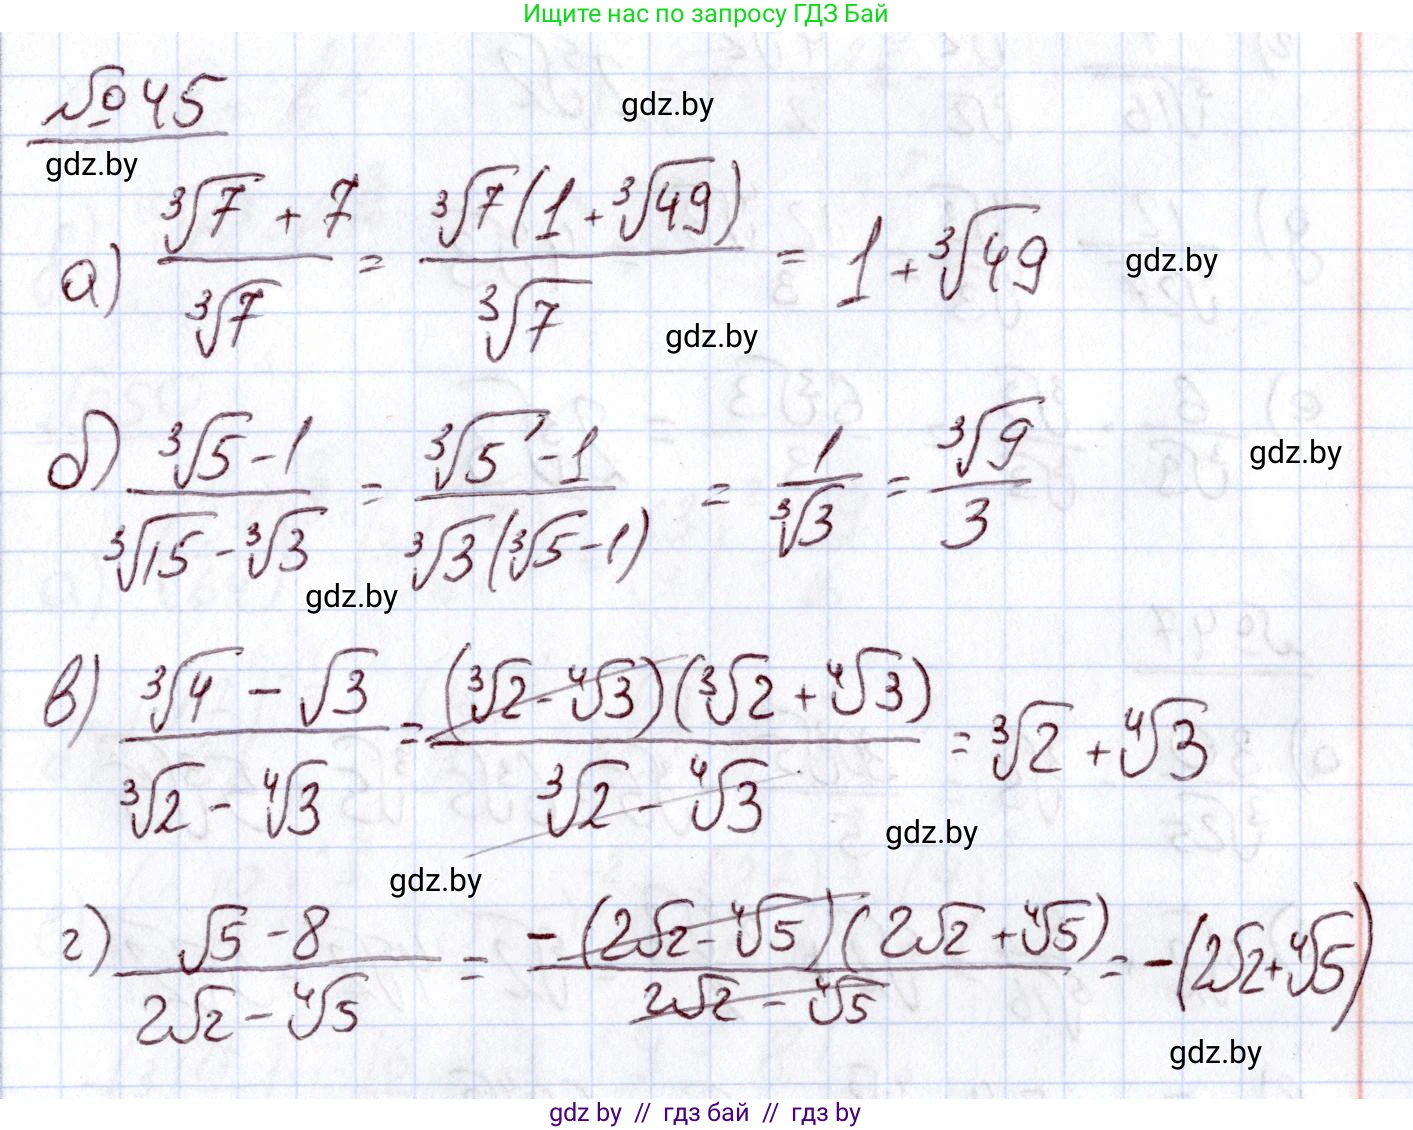 Ищите нас по запросу ГДЗ Бай
№ 45
gdz.by
gdz.by
а) (∛7 + 7)/∛7 = ∛7(1 + ∛49)/∛7 = 1 + ∛49
gdz.by
gdz.by
б) (∛5 - 1)/(∛15 - ∛3) = (∛5 - 1)/(∛3(∛5 - 1)) = 1/∛3 = ∛9/3
gdz.by
gdz.by
в) (∛4 - √3)/(∛2 - ∜3) = (∛2 - ∜3)(∛2 + ∜3)/(∛2 - ∜3) = ∛2 + ∜3
gdz.by
gdz.by
г) (√5 - 8)/(2√2 - ∜5) = -(2√2 - ∜5)(2√2 + ∜5)/(2√2 - ∜5) = -(2√2 + ∜5)
gdz.by
gdz by // гдз бай // гдз by